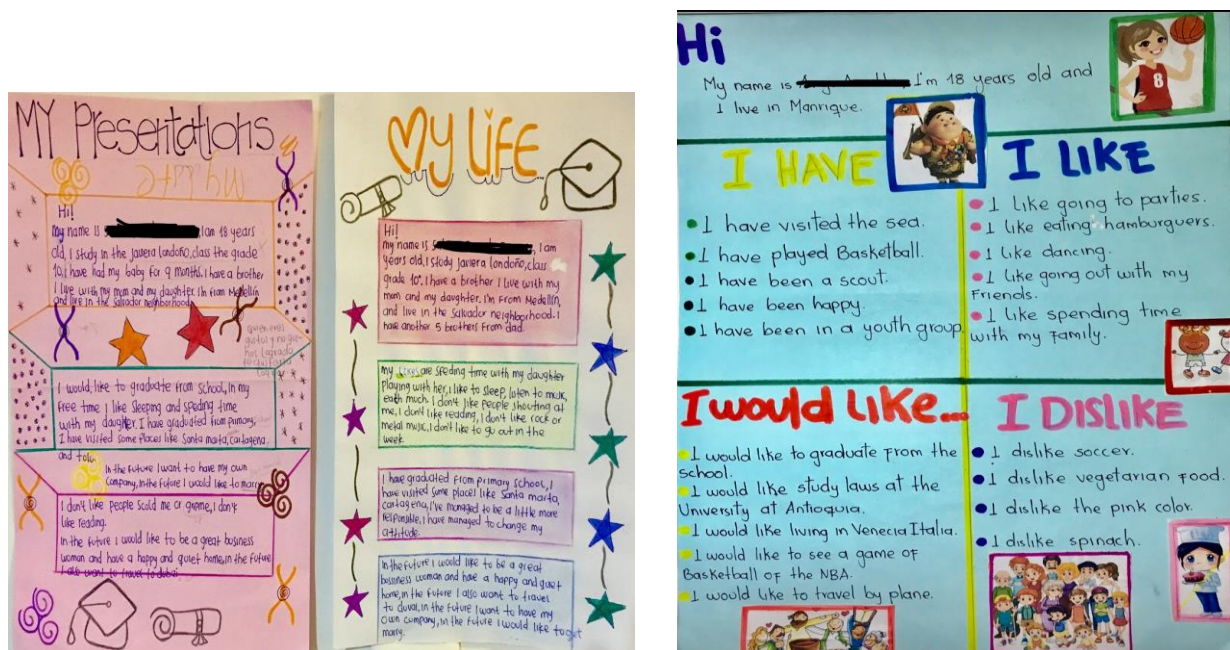 MY Presentations
My Life
Hi!
My name is I am 18 years
old, I study in the Javiera Londoño, class the grade
10, I have had my baby for 9 months, I have a brother
I live with my mom and my daughter I'm from Medellín
and live in the Salvador neighborhood
I would like to graduate from school, in my
free time I like sleeping and speding time
with my daughter. I have graduated from primary,
I have visited some places like Santa marta, cartagena
and tolu
In the future I want to have my own
company, in the future I would like to marry
I don't like people scold me or greme, I don't
like reading.
In the future I would like to be a great business
woman and have a happy and quiet home, in the future
I also want to travel to dubai
My LiFE
Hi!
my name is , I am
years old, I study Javiera Londoño, class
grade 10. I have a brother I live with my
mom and my daughter, I'm from Medellín,
and live in the Salvador neighborhood. I
have another 5 brothers from dad.
my likes are speding time with my daughter
playing with her, I like to sleep, listen to music,
each much. I don't like people shouting at
me, I don't like reading, I don't like rock or
metal music, I don't like to go out in the
week.
I have graduated from primary school, I
have visited some places like Santa marta,
cartagena, I've managed to be a little more
responsible, I have managed to change my
attitude.
In the future I would like to be a great
business woman and have a happy and quiet
home, in the future I also want to travel
to duval, in the future I want to have my
own company, in the future I would like to get
marry.
Hi
My name is I'm 18 years old and
I live in Manrique.
8
I HAVE
I have visited the sea.
I have played Basketball.
I have been a scout.
I have been happy.
I have been in a youth group.
I LIKE
I like going to parties.
I like eating hamburguers.
I like dancing.
I like going out with my
Friends.
I like spending time
with my Family.
I would Like...
I would like to graduate from the
school.
I would like study laws at the
University at Antioquia.
I would like living in Venecia Italia.
I would like to see a game of
Basketball of the NBA.
I would like to travel by plane.
I DISLIKE
I dislike soccer.
I dislike vegetarian food.
I dislike the pink color.
I dislike spinach.